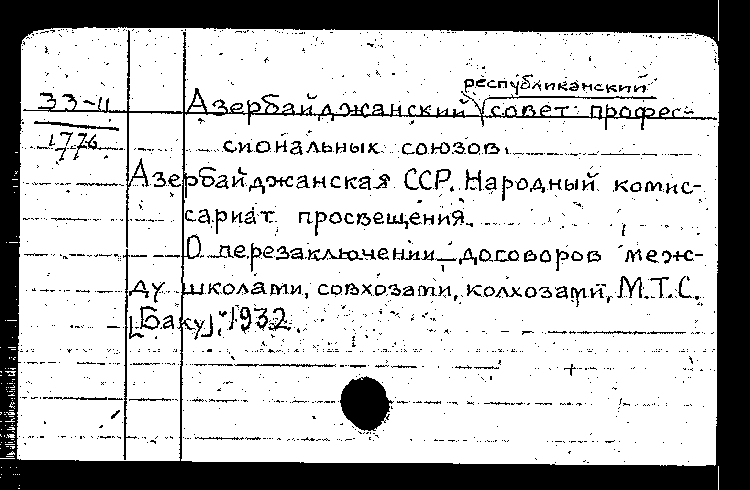 республиканский
33-11 Азербайджанский совет профес-
1776
сиональных союзов.
Азербайджанская ССР. Народный комис-
сариат просвещения.
О перезаключении договоров меж-
ду школами, совхозами, колхозами, М.Т.С.
[Баку], 1932.